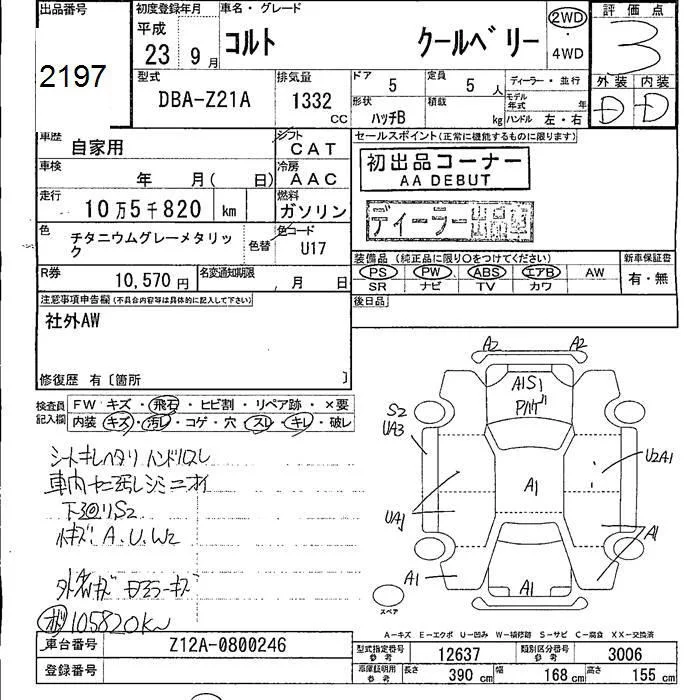 出品番号
2197
初度登録年月
平成
23 9月
車名・グレード
コルト クールベリー
2WD
・
4WD
評価点
3
外装 内装
D D
型式
DBA-Z21A
排気量
1332 CC
ドア 5
定員 5 人
形状 ハッチB
積載 kg
ディーラー・並行
モデル年式 年
ハンドル 左・右
車歴
自家用
シフト
CAT
車検
年 月( 日)
冷房
AAC
走行
10万5千820 km
燃料
ガソリン
色
チタニウムグレーメタリック
色替
色コード
U17
R券
10,570円
名変通知期限
月 日
セールスポイント(正常に機能するものに限ります)
初出品コーナー
AA DEBUT
ディーラー出品車
装備品(純正品に限り〇をつけてください)
PS PW ABS エアB AW
SR ナビ TV カワ
新車保証書
有・無
後日品
注意事項申告欄(不具合内容等は具体的に記入して下さい)
社外AW
修復歴 有〔箇所 〕
検査員記入欄
FW キズ・飛石・ヒビ割・リペア跡・×要
内装 キズ・汚レ・コゲ・穴・スレ・キレ・破レ
シートキレヘタリ ハンドルスレ
下回りS2
キズ A.U.W2
105820km
A2 A2
A1S1
S2
UA3
U2A1
A1
UA1
A1
A1
A1
スペア
A-キズ E-エクボ U-凹み W-補修跡 S-サビ C-腐食 XX-交換済
車台番号
Z12A-0800246
登録番号
型式指定番号 参考
12637
類別区分番号 参考
3006
車庫証明用 参考
長さ 390 cm 幅 168 cm 高さ 155 cm